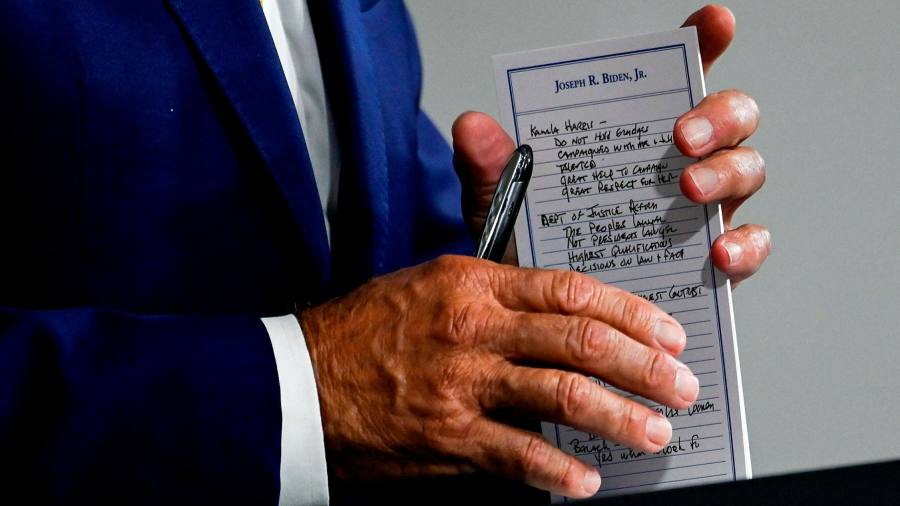 JOSEPH R. BIDEN, JR.
KAMALA HARRIS -
DO NOT HOLD GRUDGES
CAMPAIGNED WITH ME & JILL
TALENTED
GREAT HELP TO CAMPAIGN
GREAT RESPECT FOR HER
DEPT OF JUSTICE REFORM
THE PEOPLES LAWYER
NOT PRESIDENTS LAWYER
HIGHEST QUALIFICATIONS
DECISIONS ON LAW & FACT
CONTRAST
WOMAN
BARACK -
YES